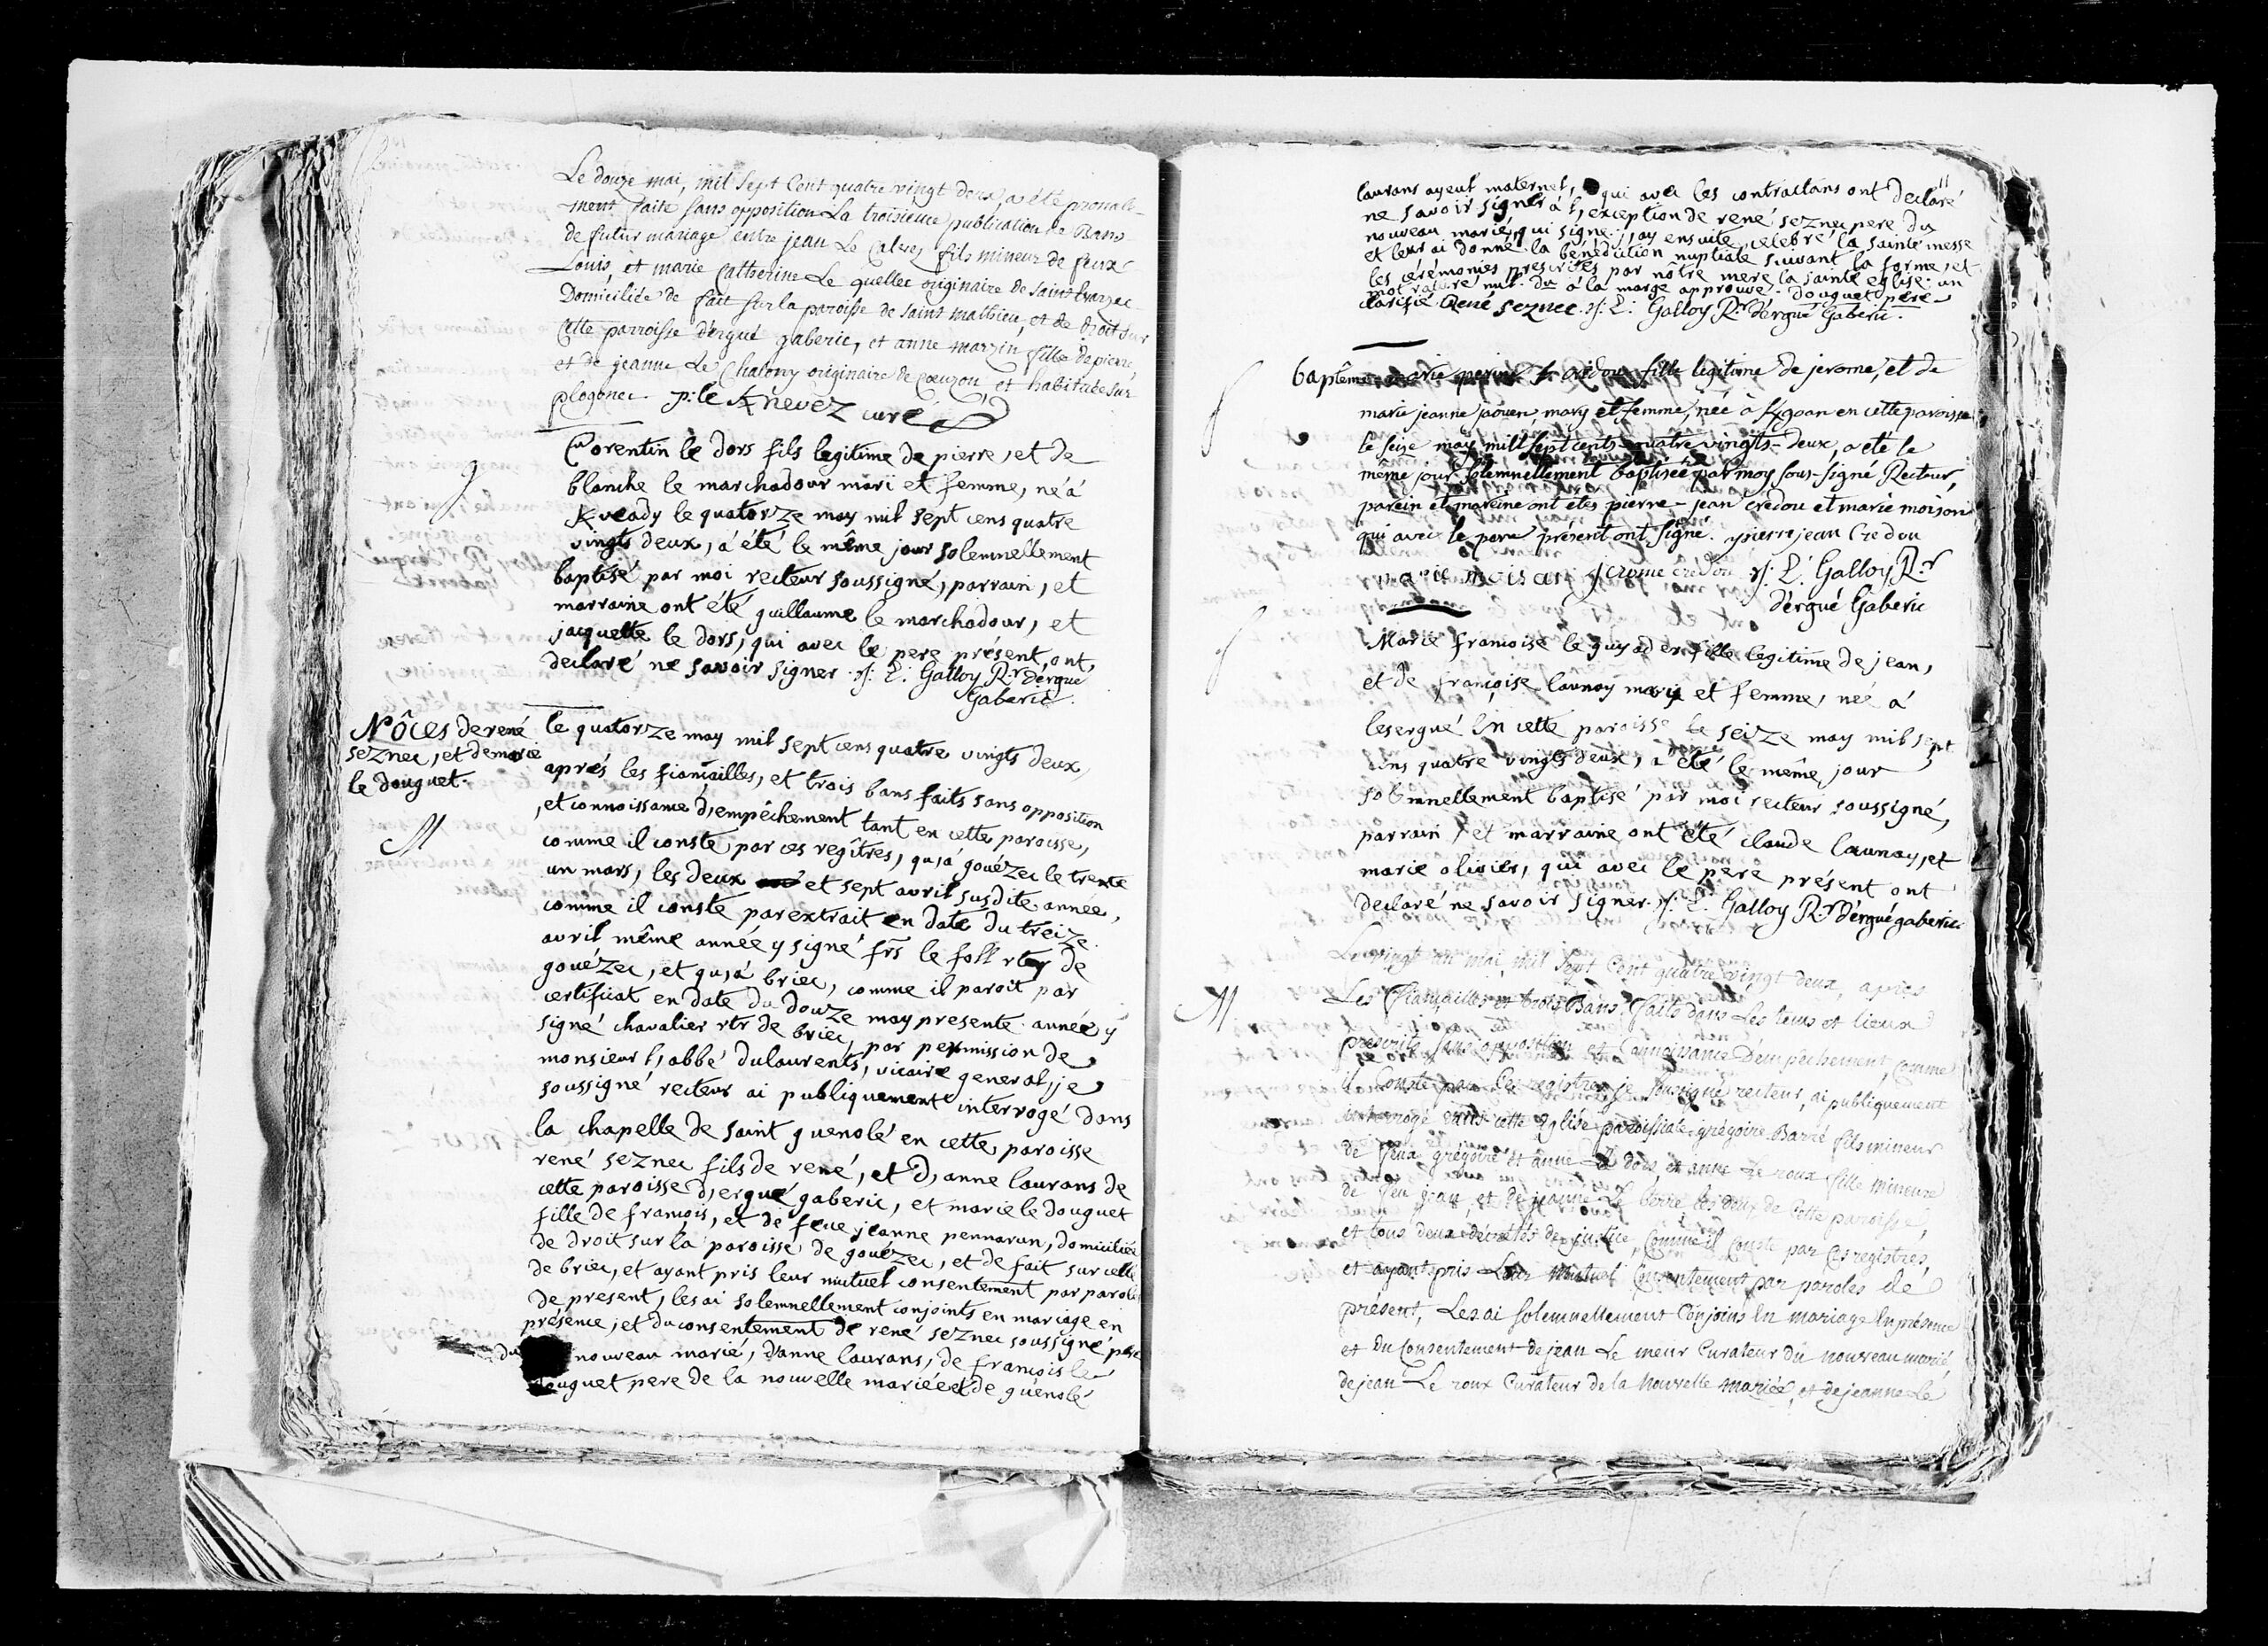 Le douze mai, mil sept Cent quatre vingt deux, a été pronale-
ment faite sans opposition La troisieme publication de Bans
de futur mariage entre jean Le Calvez fils mineur de feux
Louis, et marie Catherine Le quellec originaire de Saint
Domiciliée de fait sur la paroisse de saint mathieu, et de droit sur
Cette parroisse d'ergué gaberic, et anne marzin fille de pierre,
et de jeanne Le Chalony originaire de Cœuzon, et habituée sur
plogonec J: le Knevez curé
Corentin le dors fils legitime de pierre, et de
blanche le marchadour mari et femme, né à
Kveady le quatorze may mil sept cens quatre
vingts deux, a été le même jour solemnellement
baptisé par moi recteur soussigné, parrain, et
marraine ont été guillaume le marchadour, et
jacquette le dors, qui avec le pere présent, ont,
declaré ne savoir signer. J: L: Galloy R.r d'ergué
Gaberic.
Nôces de rené
seznec, et de marie
le douguet.
M
le quatorze may mil sept cens quatre vingts deux,
aprés les fiançailles, et trois bans faits sans opposition
, et connoissance d,empéchement tant en cette paroisse,
comme il conste par ces regîtres, qu,á gouézec le trente
un mars, les deux et sept avril susdite année,
comme il conste par extrait en date du treize
avril même année y signé frs le foll rtr de
gouézec, et qu,á briec, comme il paroit par
certificat en date du douze may presente année y
signé chavalier rtr de briec, par permission de
monsieur l,abbé dulaurents, vicaire general, je
soussigné recteur ai publiquement interrogé dans
la chapelle de saint guenolé en cette paroisse
rené seznec fils de rené, et d, anne laurans de
cette paroisse d,ergué gaberic, et marie le douguet
fille de françois, et de feue jeanne pennarun, domiciliée
de droit sur la paroisse de gouézec, et de fait sur celle
de briec, et ayant pris leur mutuel consentement par paroles
de present, les ai solemnellement conjoints en mariage en
présence, et du consentement de rené seznec soussigné pere
du nouveau marié, d'anne laurans, de françois le
douguet pere de la nouvelle mariée et de guénolé
11
laurans ayeul maternel, qui avec les contractans ont declaré
ne savoir signer á l, exception de rené seznec pere du
nouveau marié, qui signe. j,ay ensuite, celebré la sainte messe
et leur ai donné la bénédiction nuptiale suivant la forme, et
les cérémonies prescrites par nôtre mere la sainte eglise. un
mot raturé nul. du á la marge approuvé. douguet pere
clarifié. René Seznec. J: L: Galloy R.r d'ergué Gaberic.
baptême marie perine credou fille legitime de jerome, et de
marie jeanne jaouen mary et femme, née à Kgoan en cette paroisse
le seize may mill sept cents quatre vingts-deux, a été le
même jour solemnellement baptisée par moy sous-signé Recteur,
parein et mareine ont étés pierre-jean credou et marie moisan
qui avec le pere présent ont signé. pierre jean Credou
marie moisan jerome credou J: L: Galloy R.r
d'ergué Gaberic
Marie françoise le guyader fille legitime de jean,
et de françoise launay mary et femme, neé á
lesergué En cette paroisse le seize may mil sept
cens quatre vingts deux, a été le même jour
solemnellement baptisé par moi recteur soussigné,
parrain, et marraine ont été claude launay, et
marie olivier, qui avec le pere présent ont
declaré ne savoir signer. J: L: Galloy R.r d'ergué gaberic.
M.
Le vingt un mai, mil sept Cent quatre vingt deux, après
Les fiançailles et trois Bans faits dans Les tems et lieux
prescrits sans opposition et Connoissance d'empechement, Comme
il Conste par Ces registres, je soussigné recteur, ai publiquement
interrogé dans cette église paroissiale grégoire Barré fils mineur
de feux grégoire et anne Le dors, et anne Le roux fille mineure
de feu jean, et de jeanne Le berre les deux de Cette paroisse,
et tous deux décretés de justice, Comme il Conste par Ces registres,
et ayant pris Leur Mutuel Consentement par paroles de
présent, Les ai solemnellement Conjoins En mariage En présence
et Du Consentement de jean Le meur Curateur du nouveau marié,
de jean Le roux Curateur de la nouvelle mariée, et de jeanne Le